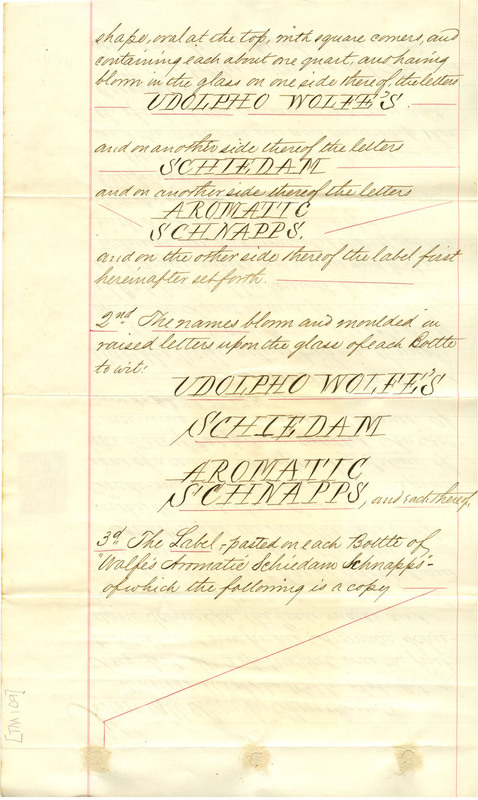 shape, oval at the top, with square corners, and
containing each about one quart, and having
blown in the glass on one side thereof, the letters
UDOLPHO WOLFE'S.
and on another side thereof the letters
SCHIEDAM
and on another side thereof the letters
AROMATIC
SCHNAPPS.
and on the other side thereof the label first
hereinafter set forth.
2nd The names blown and moulded in
raised letters upon the glass of each Bottle
to wit:
UDOLPHO WOLFE'S
SCHIEDAM
AROMATIC
SCHNAPPS, and each thereof,
3d The Label, pasted on each Bottle of
"Wolfe's Aromatic Schiedam Schnapps"-
of which the following is a copy
[TM 109]